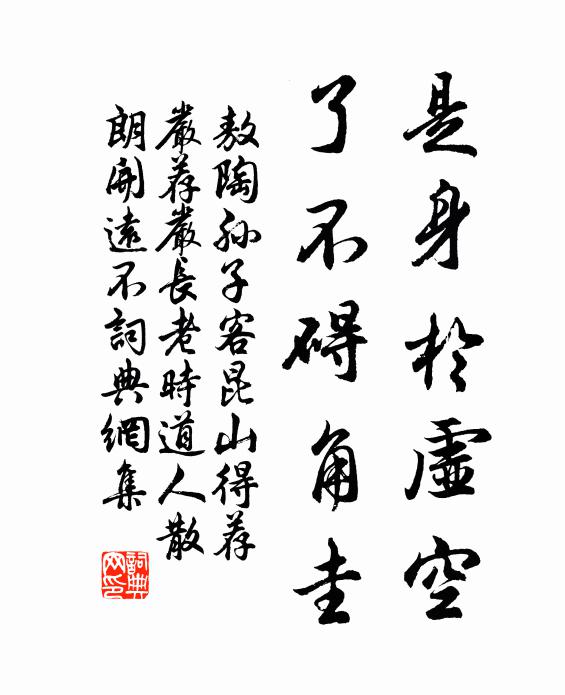 是身於虛空
了不碍角圭
敖陶孙子客昆山得荐
嚴荐嚴長老時道人散
朗開遠不詞典網集
詞典网印